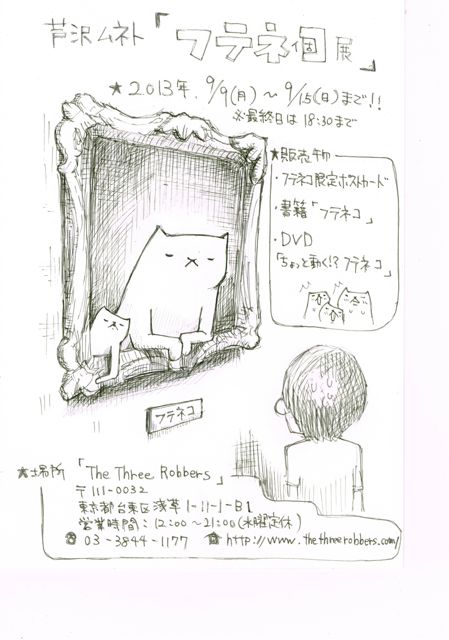 芦沢ムネト「フテネコ個展」
★2013年.9/9(月)～9/15(日)まで!!
※最終日は18:30まで
★販売物
・フテネコ限定ポストカード
・書籍「フテネコ」
・DVD
「ちょっと動く!?フテネコ」
フテネコ
★場所「The Three Robbers」
〒111-0032
東京都台東区浅草1-11-1-B1
営業時間：12:00～21:00(水曜定休)
☎ 03-3844-1177 http://www.thethreerobbers.com/